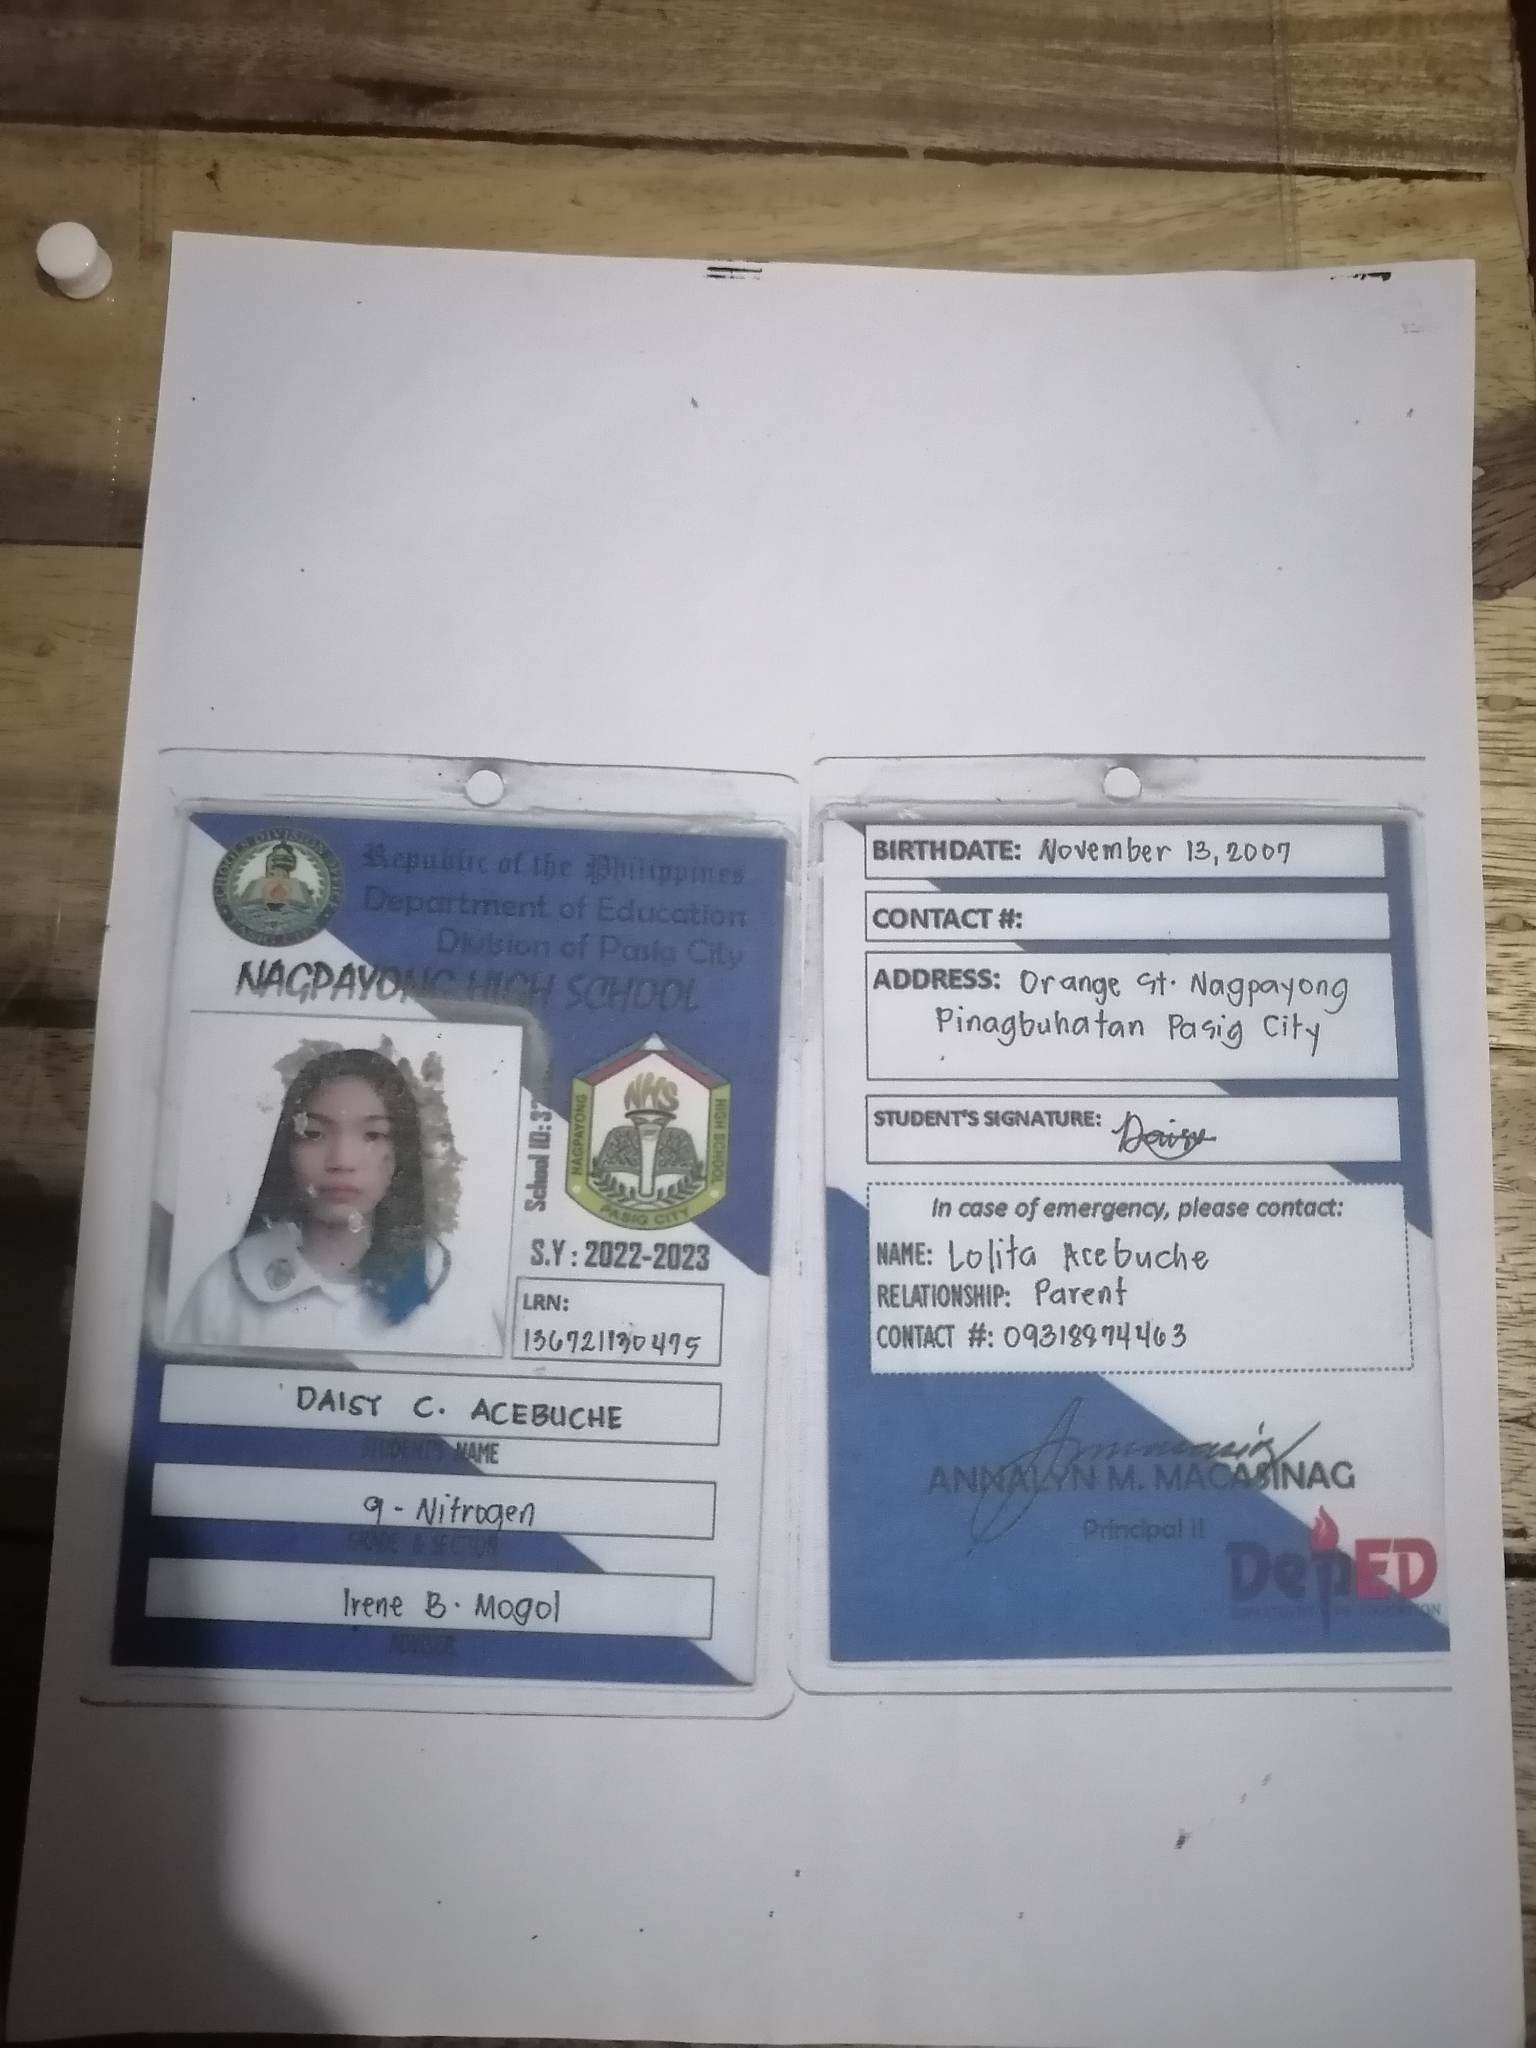 SCHOOLS DIVISION OFFICE
PASIG CITY
Republic of the Philippines
Department of Education
Division of Pasig City
NAGPAYONG HIGH SCHOOL
School ID: 3
NHS
NAGPAYONG
HIGH SCHOOL
PASIG CITY
S.Y : 2022-2023
LRN:
136721130475
DAISY C. ACEBUCHE
STUDENT'S NAME
9 - Nitrogen
GRADE & SECTION
Irene B. Mogol
ADVISER
BIRTHDATE: November 13, 2007
CONTACT #:
ADDRESS: Orange St. Nagpayong
Pinagbuhatan Pasig City
STUDENT'S SIGNATURE: Daisy
In case of emergency, please contact:
NAME: Lolita Acebuche
RELATIONSHIP: Parent
CONTACT #: 09318974463
ANNALYN M. MACASINAG
Principal II
DepED
DEPARTMENT OF EDUCATION